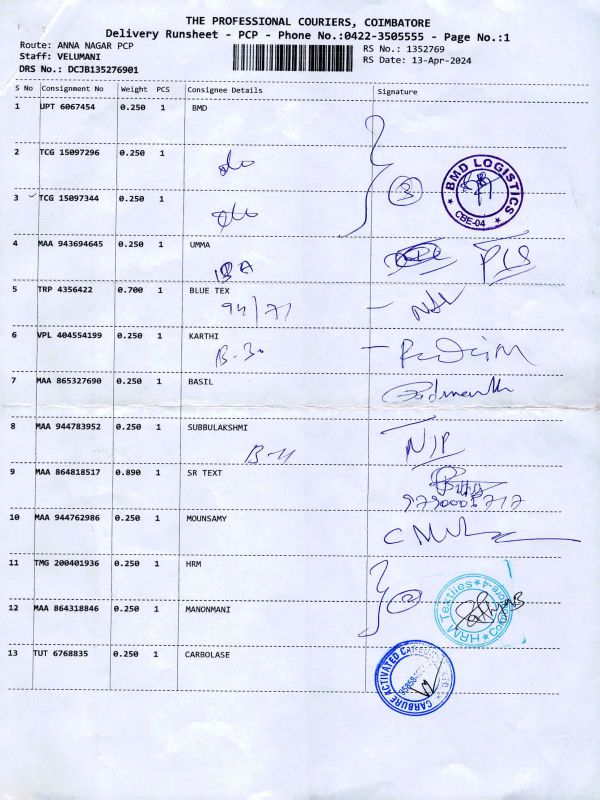 THE PROFESSIONAL COURIERS, COIMBATORE
Delivery Runsheet - PCP - Phone No.:0422-3505555 - Page No.:1
Route: ANNA NAGAR PCP
RS No.: 1352769
Staff: VELUMANI
RS Date: 13-Apr-2024
DRS No.: DCJB135276901
S No Consignment No Weight PCS Consignee Details Signature
1 UPT 6067454 0.250 1 BMD
2 TCG 15097296 0.250 1
3 TCG 15097344 0.250 1
3
BMD LOGISTICS
CBE-04
4 MAA 943694645 0.250 1 UMMA
5 TRP 4356422 0.700 1 BLUE TEX
94/71
6 VPL 404554199 0.250 1 KARTHI
B-30
7 MAA 865327690 0.250 1 BASIL
8 MAA 944783952 0.250 1 SUBBULAKSHMI
B-11
9 MAA 864818517 0.890 1 SR TEXT
10 MAA 944762986 0.250 1 MOUNSAMY
11 TMG 200401936 0.250 1 HRM
12 MAA 864318846 0.250 1 MANONMANI
HRM Textiles
13 TUT 6768835 0.250 1 CARBOLASE
CARBURE ACTIVATED